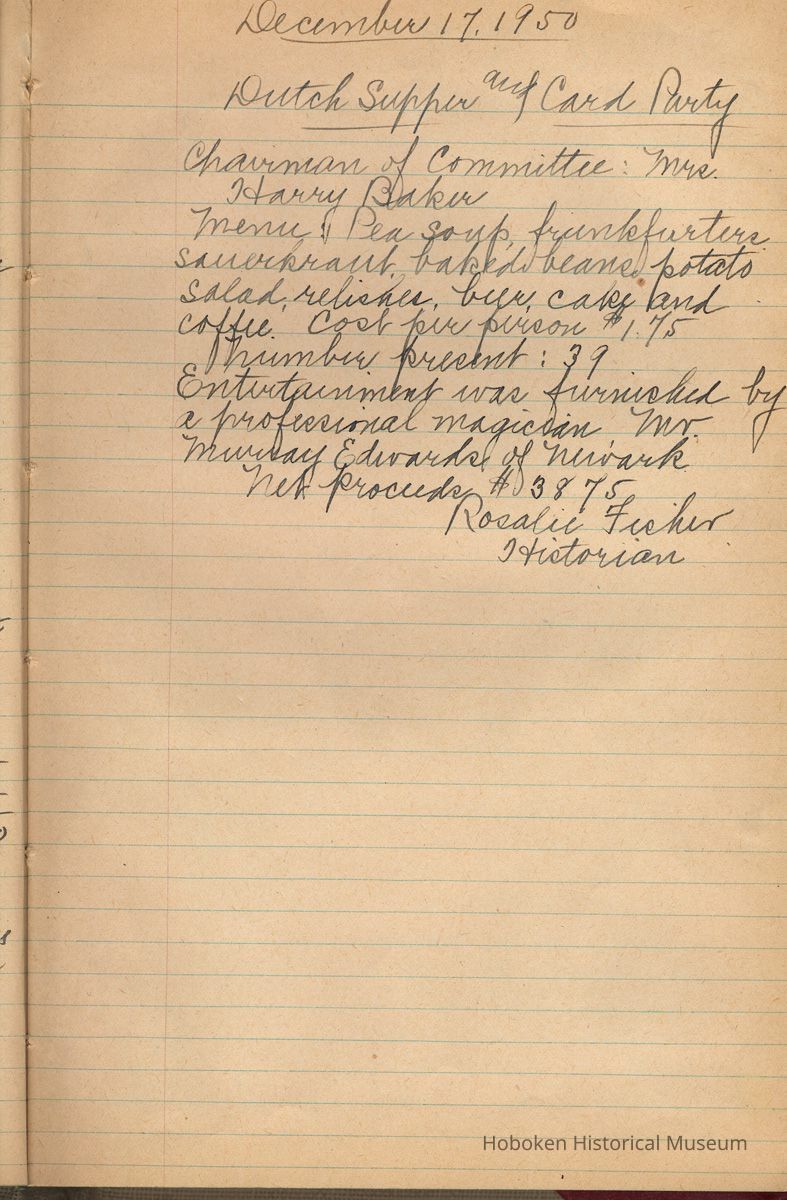 December 17, 1950
Dutch Supper and Card Party
Chairman of Committee: Mrs.
Harry Baker
Menu: Pea soup, frankfurters
sauerkraut, baked beans, potato
salad, relishes, beer, cake and
coffee. Cost per person $1.75
Number present: 39
Entertainment was furnished by
a professional magician Mr.
Murray Edwards of Newark
Net proceeds $38 75
Rosalie Fisher
Historian
Hoboken Historical Museum